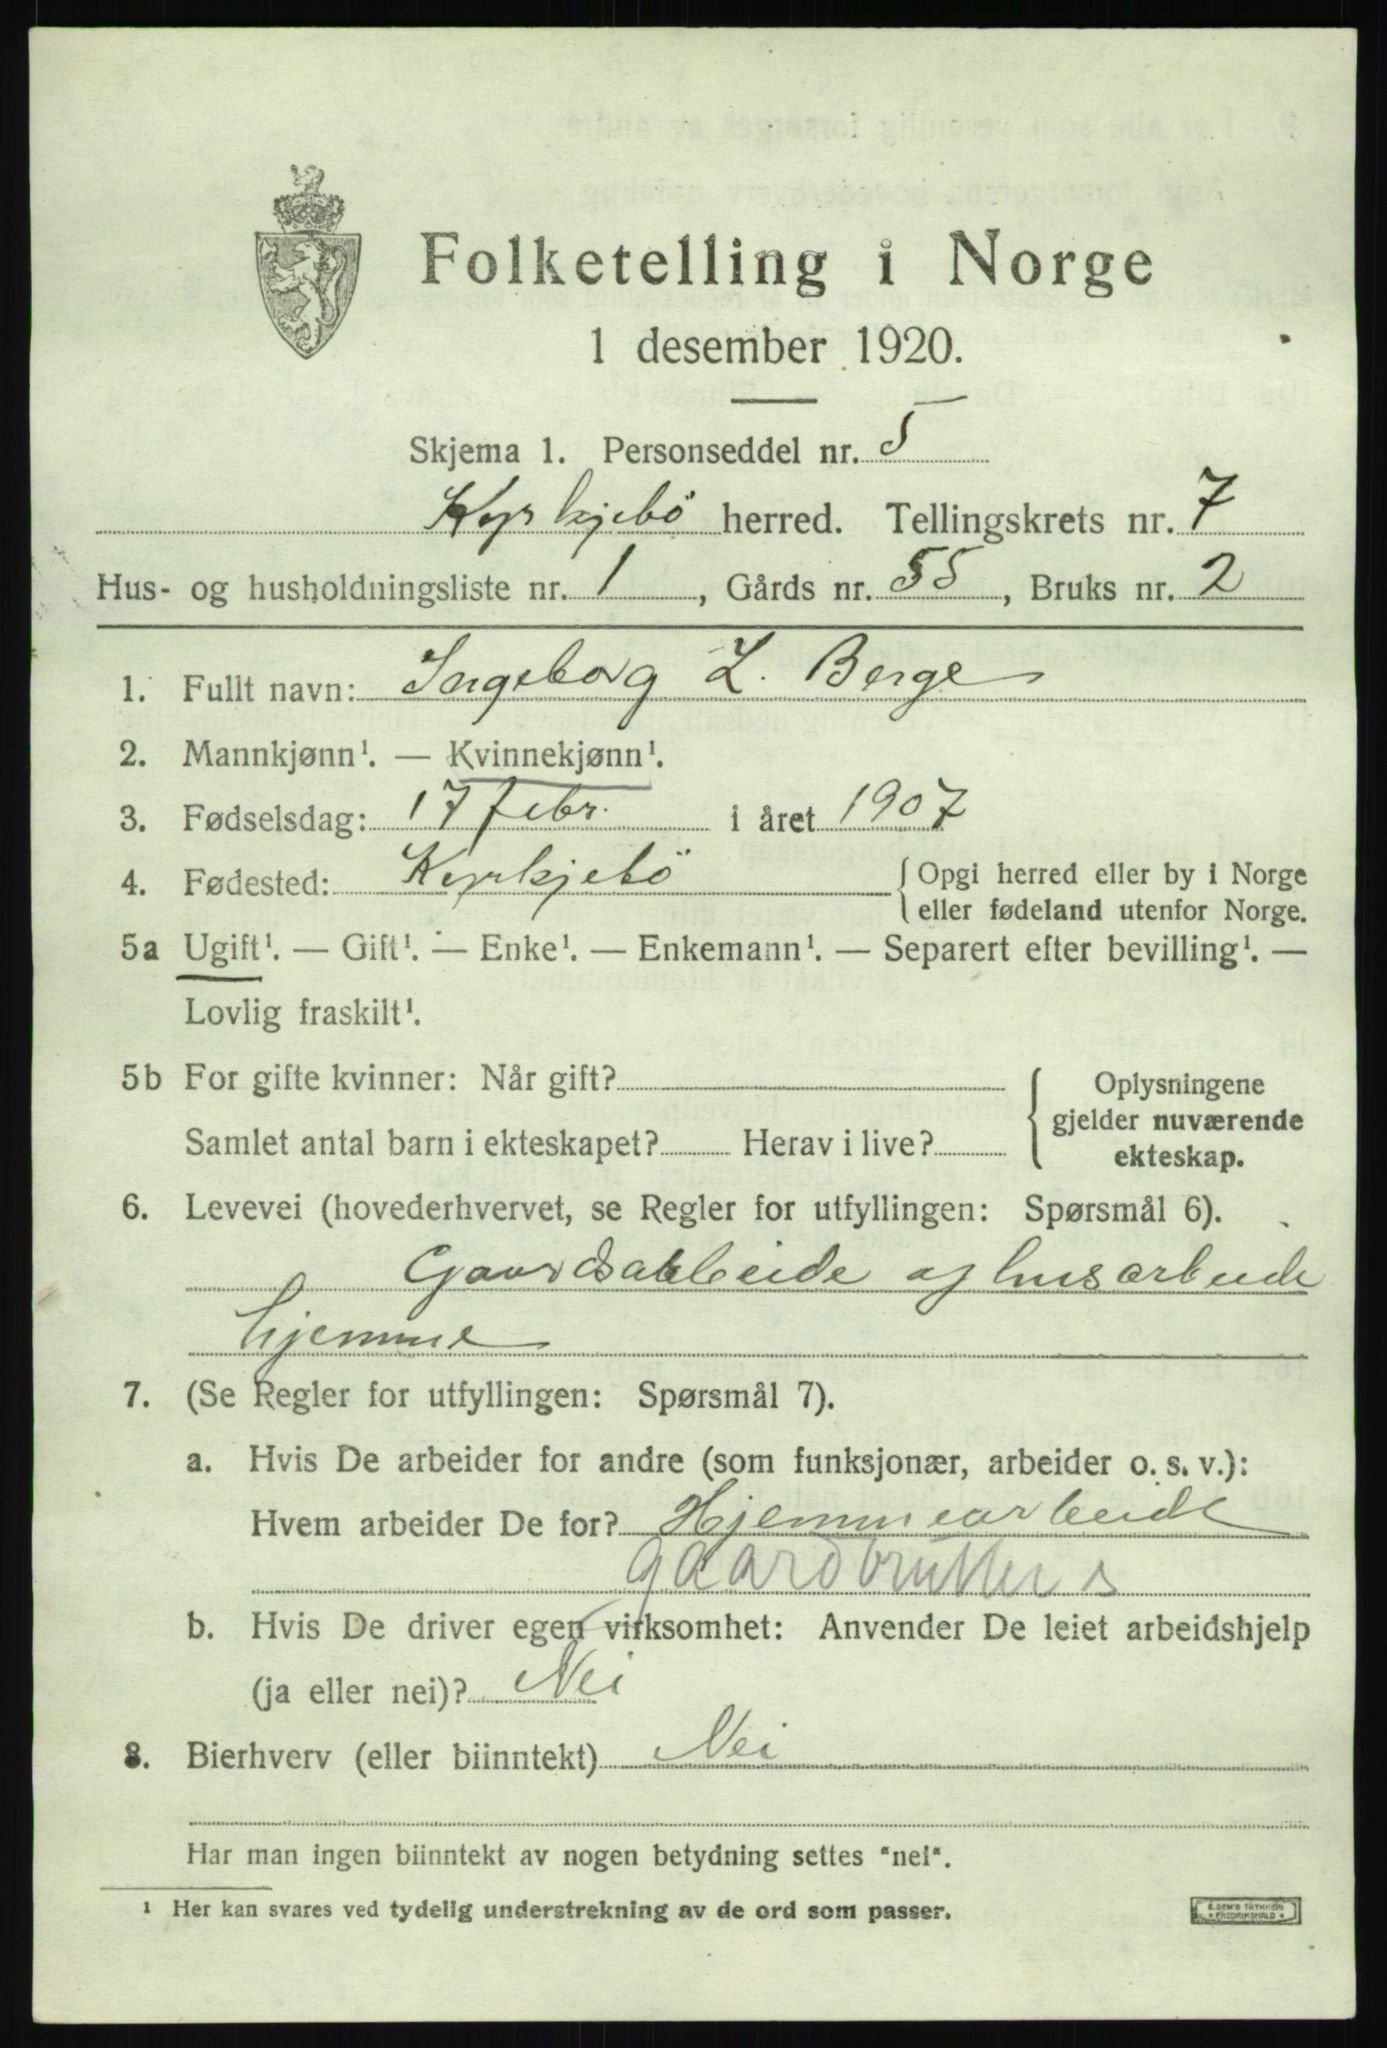 Folketelling i Norge
1 desember 1920.
Skjema 1. Personseddel nr. 5
Kyrkjebö herred. Tellingskrets nr. 7
Hus- og husholdningsliste nr. 1, Gårds nr. 55, Bruks nr. 2
1. Fullt navn: Ingeborg L. Berge
2. Mannkjønn¹. — Kvinnekjønn¹.
3. Fødselsdag: 17 febr. i året 1907
4. Fødested: Kyrkjebö { Opgi herred eller by i Norge
eller fødeland utenfor Norge.
5a Ugift¹. — Gift¹. — Enke¹. — Enkemann¹. — Separert efter bevilling¹. —
Lovlig fraskilt¹.
5b For gifte kvinner: Når gift?
Samlet antal barn i ekteskapet? Herav i live?
{ Oplysningene
gjelder nuværende
ekteskap.
6. Levevei (hovederhvervet, se Regler for utfyllingen: Spørsmål 6).
Gaardsarbeide og husarbeide
hjemme
7. (Se Regler for utfyllingen: Spørsmål 7).
a. Hvis De arbeider for andre (som funksjonær, arbeider o. s. v.):
Hvem arbeider De for? Hjemmearbeide
b. Hvis De driver egen virksomhet: Anvender De leiet arbeidshjelp
(ja eller nei)? Nei
8. Bierhverv (eller biinntekt) Nei
Har man ingen biinntekt av nogen betydning settes "nei".
¹ Her kan svares ved tydelig understrekning av de ord som passer.